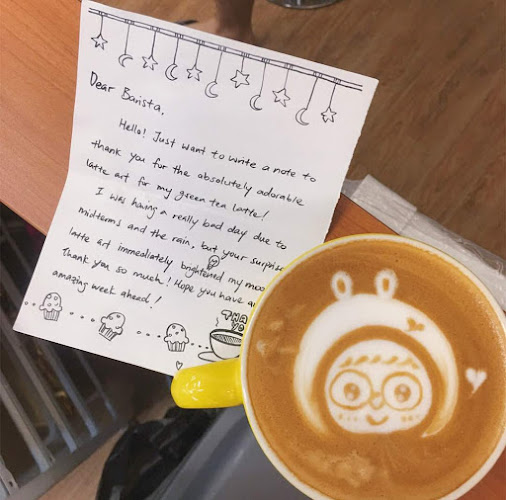 Dear Barista,
Hello! Just want to write a note to
thank you for the absolutely adorable
latte art for my green tea latte!
I was having a really bad day due to
midterms and the rain, but your surprise
latte art immediately brightened my
Thank you so much! Hope you have an
amazing week ahead!
THA
YO